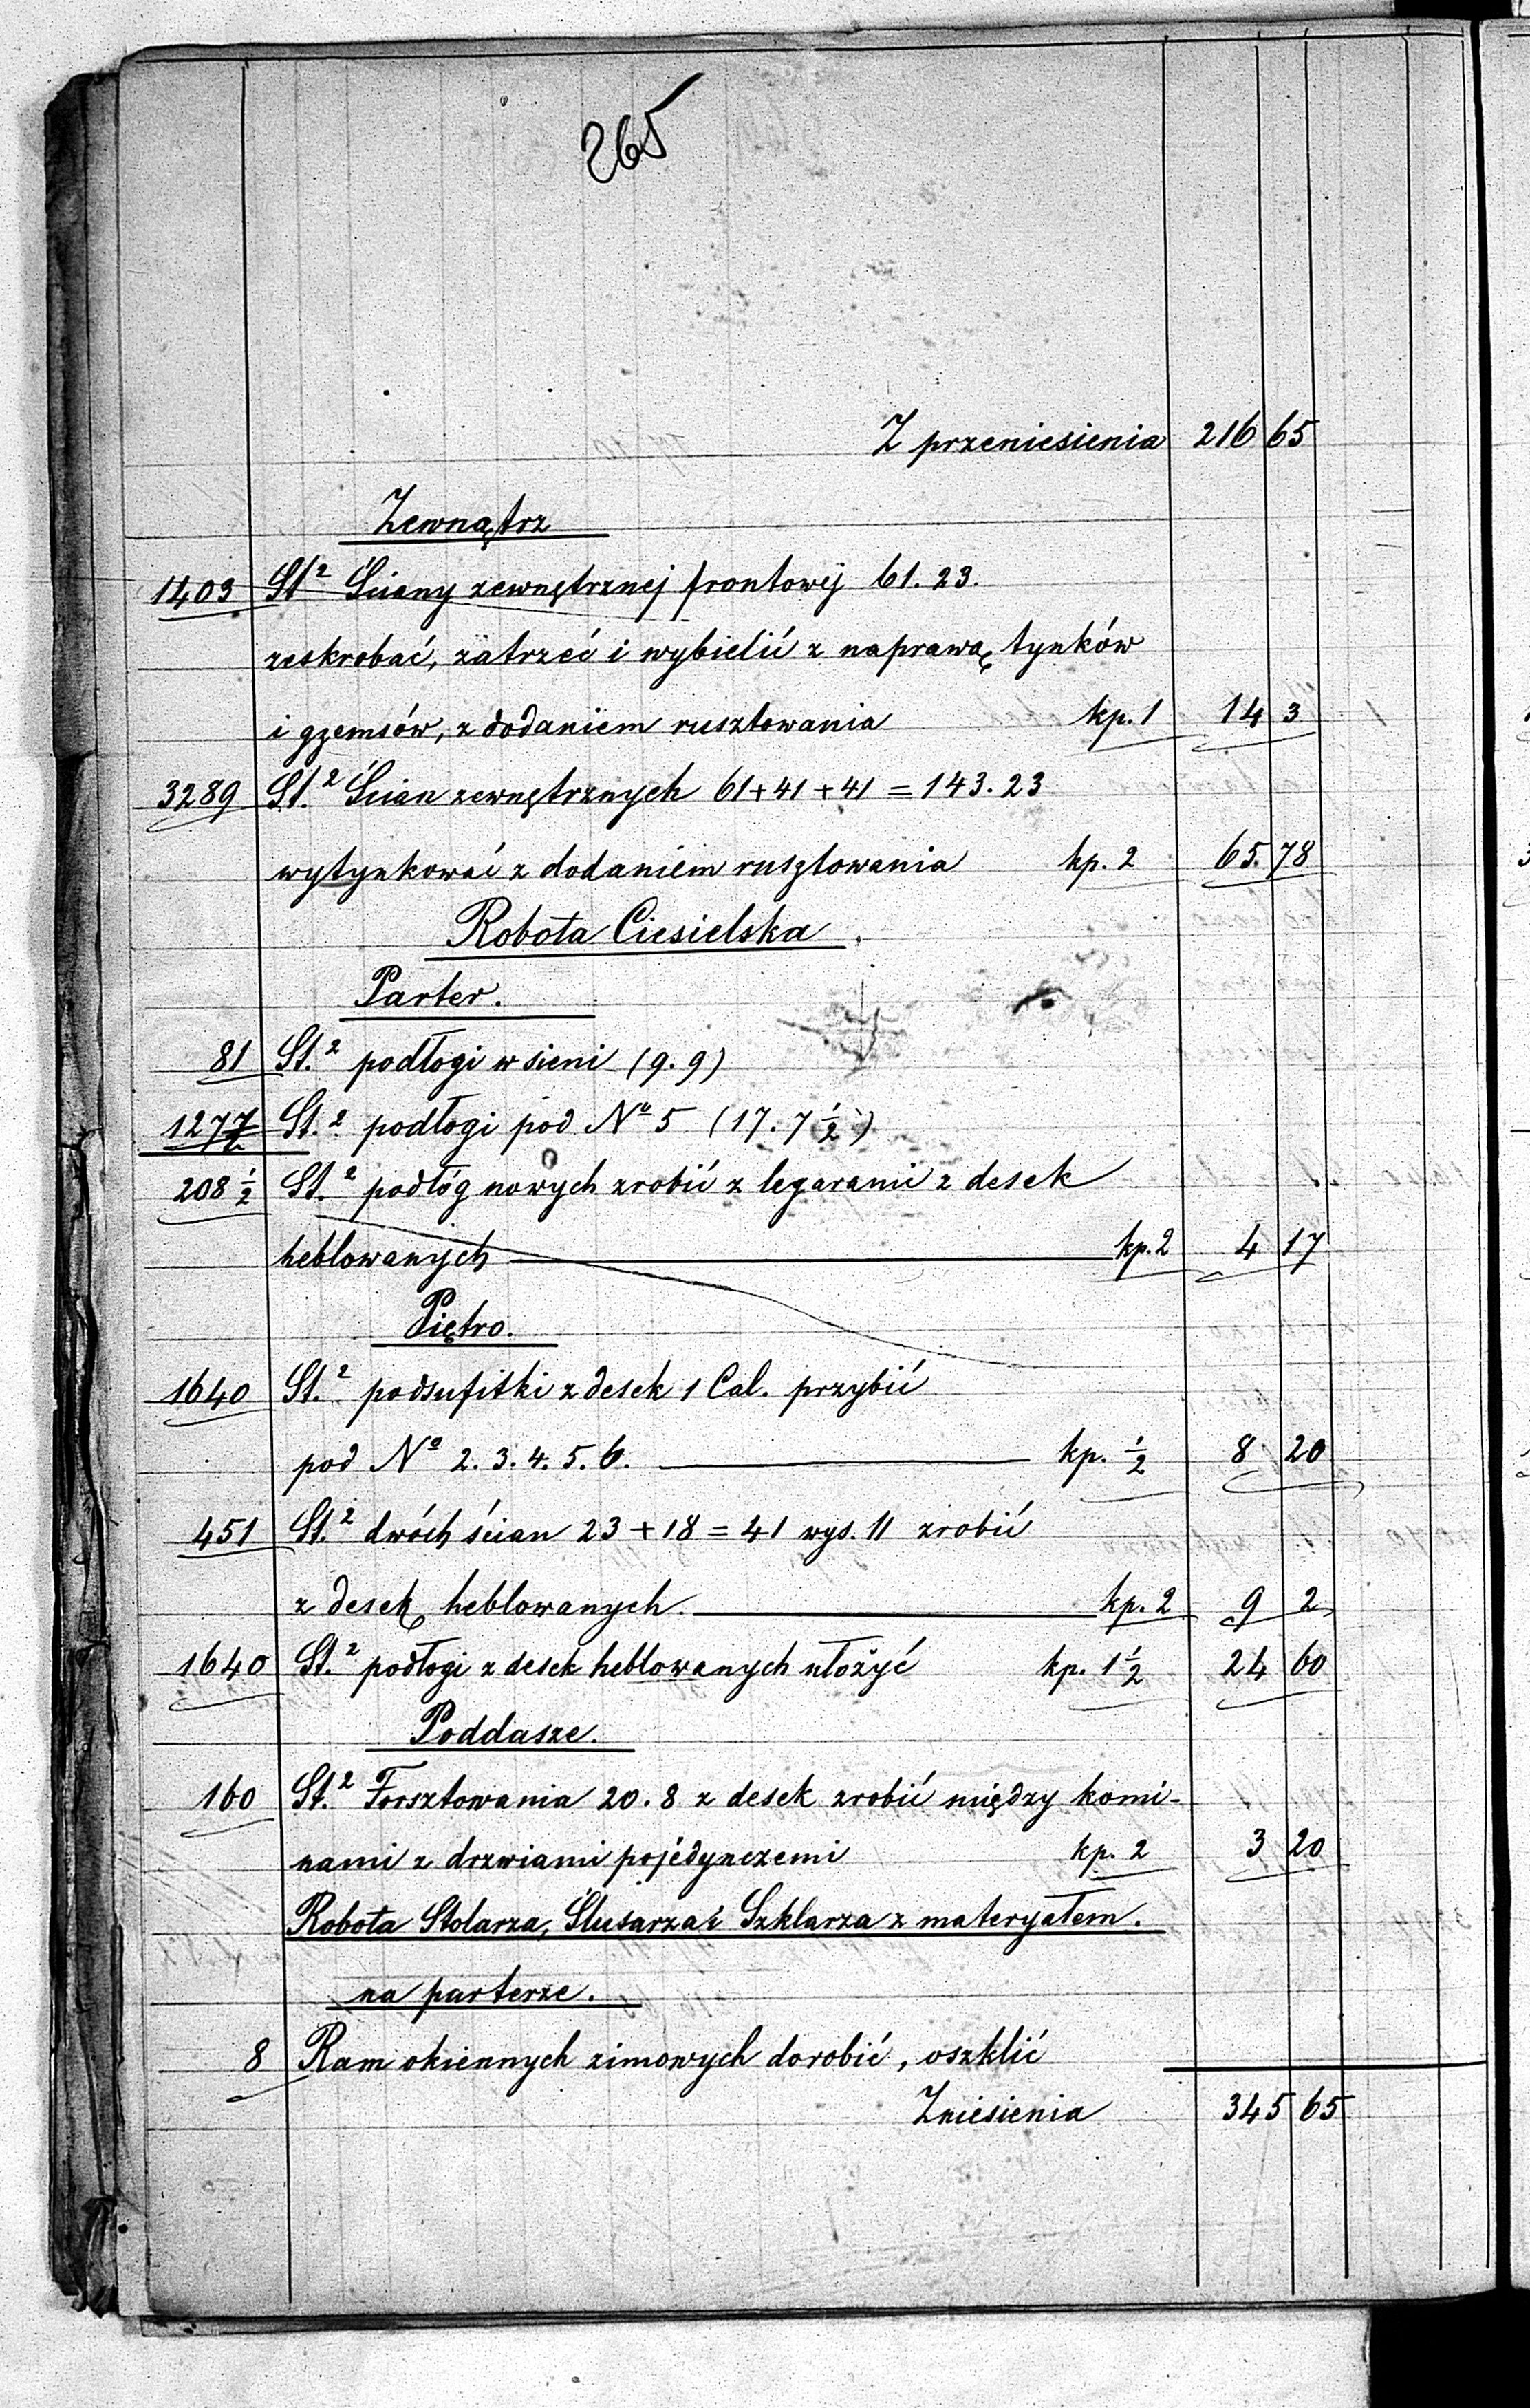 265
Z przeniesienia 216 65
Zewnątrz
1403 St² Ściany zewnętrznej frontowej 61. 23.
zeskrobać, zatrzeć i wybielić z naprawą tynków
i gzemsów, z dodaniem rusztowania kp. 1 14 3
3289 St.² Ścian zewnętrznych 61+41+41 = 143. 23
wytynkować z dodaniem rusztowania kp. 2 65. 78
Robota Ciesielska.
Parter.
81 St.² podłogi w sieni (9. 9)
127 ½ St.² podłogi pod Nº 5 (17. 7 ½)
208 ½ St.² podłóg nowych zrobić z legarami z desek
heblowanych kp. 2 4 17
Piętro.
1640 St.² podsufitki z desek 1 Cal. przybić
pod Nº 2. 3. 4. 5. 6. kp. ½ 8 20
451 St.² dwóch ścian 23 + 18 = 41 wys. 11 zrobić
z desek heblowanych. kp. 2 9 2
1640 St.² podłogi z desek heblowanych ułożyć kp. 1 ½ 24 60
Poddasze.
160 St.² Forsztowania 20. 8 z desek zrobić między komi-
nami z drzwiami pojedynczemi kp. 2 3 20
Robota Stolarza, Ślusarza i Szklarza z materyałem.
na parterze.
8 Ram okiennych zimowych dorobić, oszklić
Zniesienia 345 65